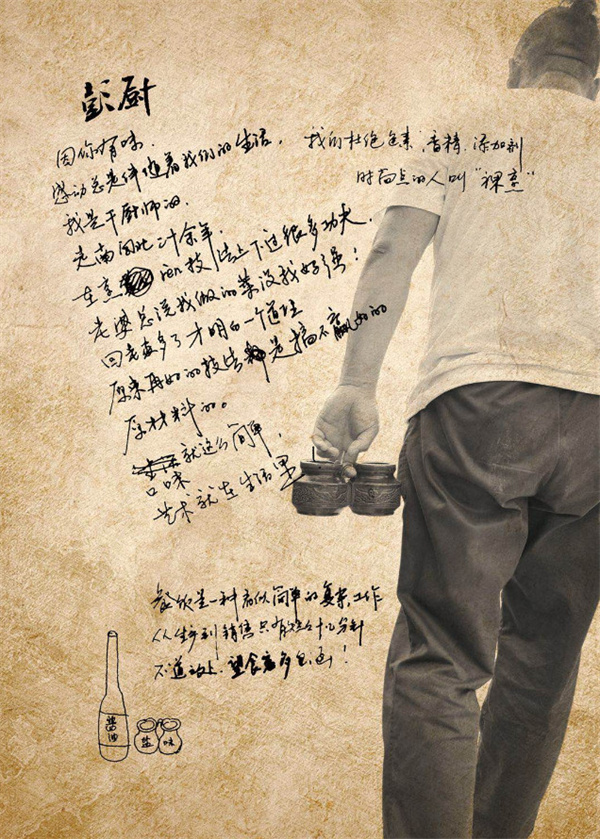 彭厨
因你有味.
感动总是伴随着我们的生活.
我是干厨师的.
走南闯北二十余年.
在烹 的技法上下过很多功夫.
老婆总说我做的菜没我妈强!
回老家多了才明白一个道理
原来再好的技法都是搞不赢好的
原材料的。
就这么简单,
口味
艺术就在生活里
我们杜绝色素,香精,添加剂
时尚点的人叫“裸烹”
餐饮是一种看似简单的复杂工作
从生产到销售只有短短十几分钟
不道之处.望食客多包涵!
酱油
盐 味